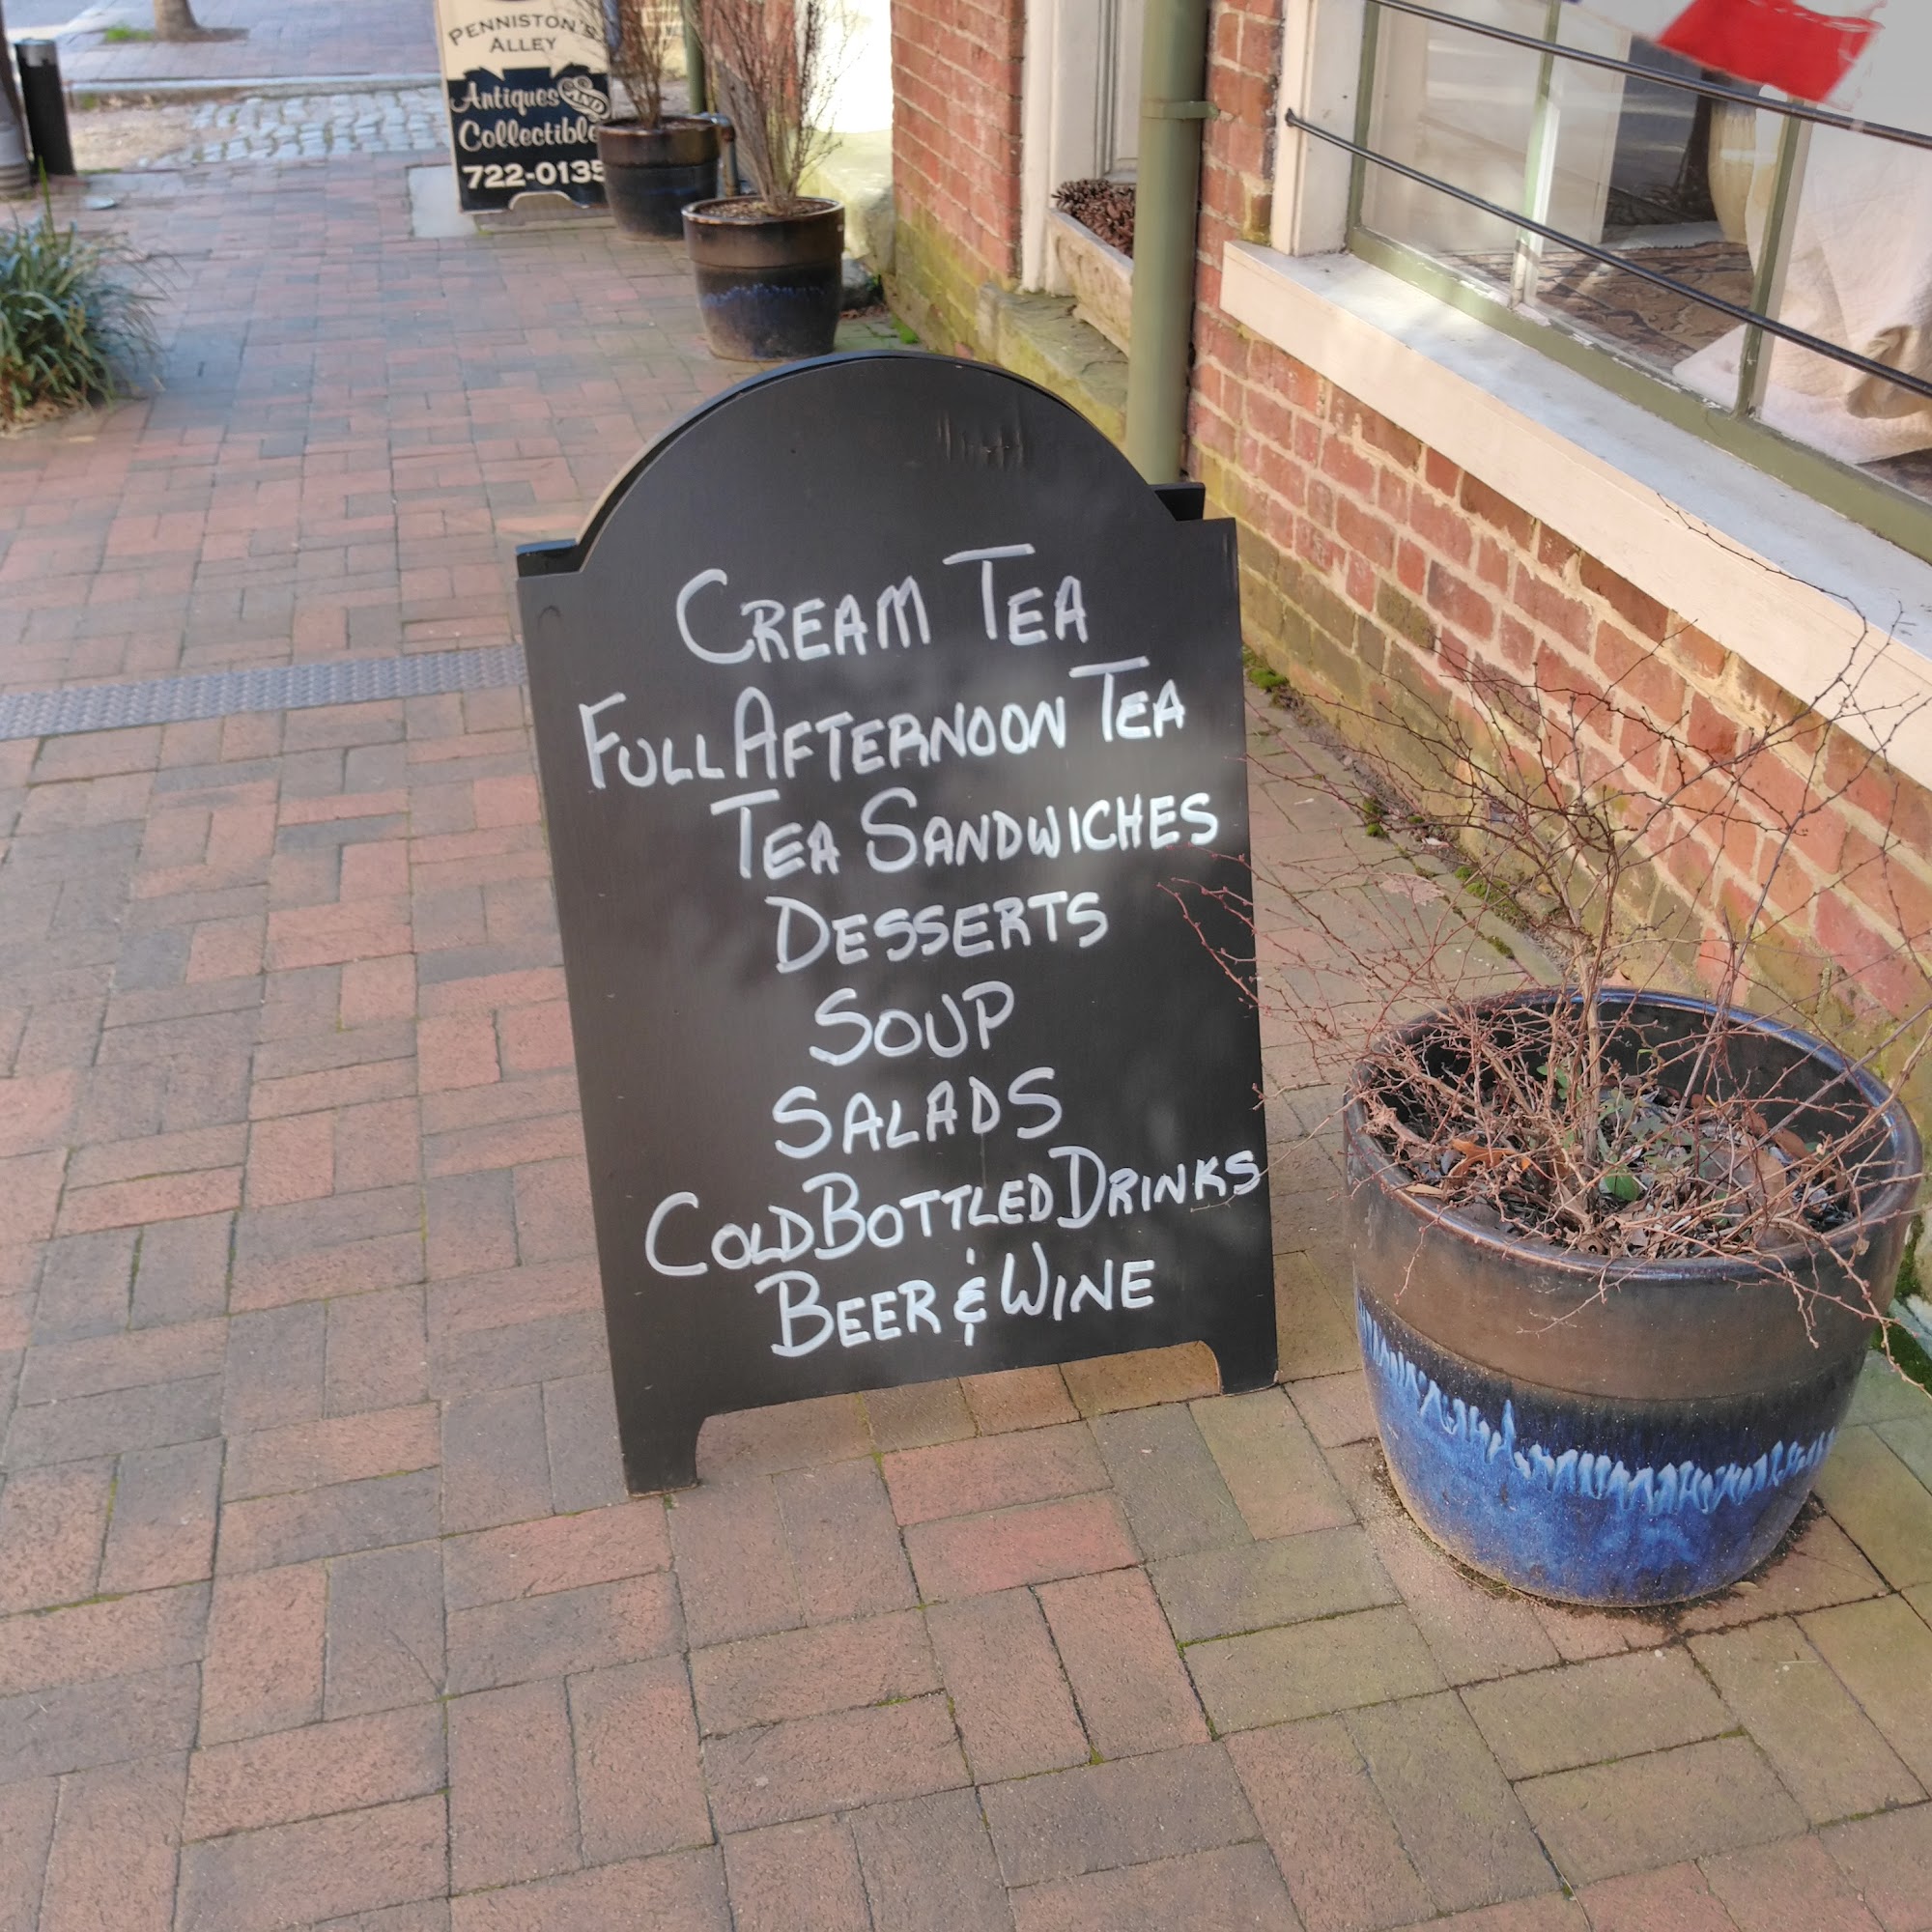 PENNISTON'S
ALLEY
Antiques AND
Collectible
722-0135
CREAM TEA
FULL AFTERNOON TEA
TEA SANDWICHES
DESSERTS
SOUP
SALADS
COLD BOTTLED DRINKS
BEER & WINE